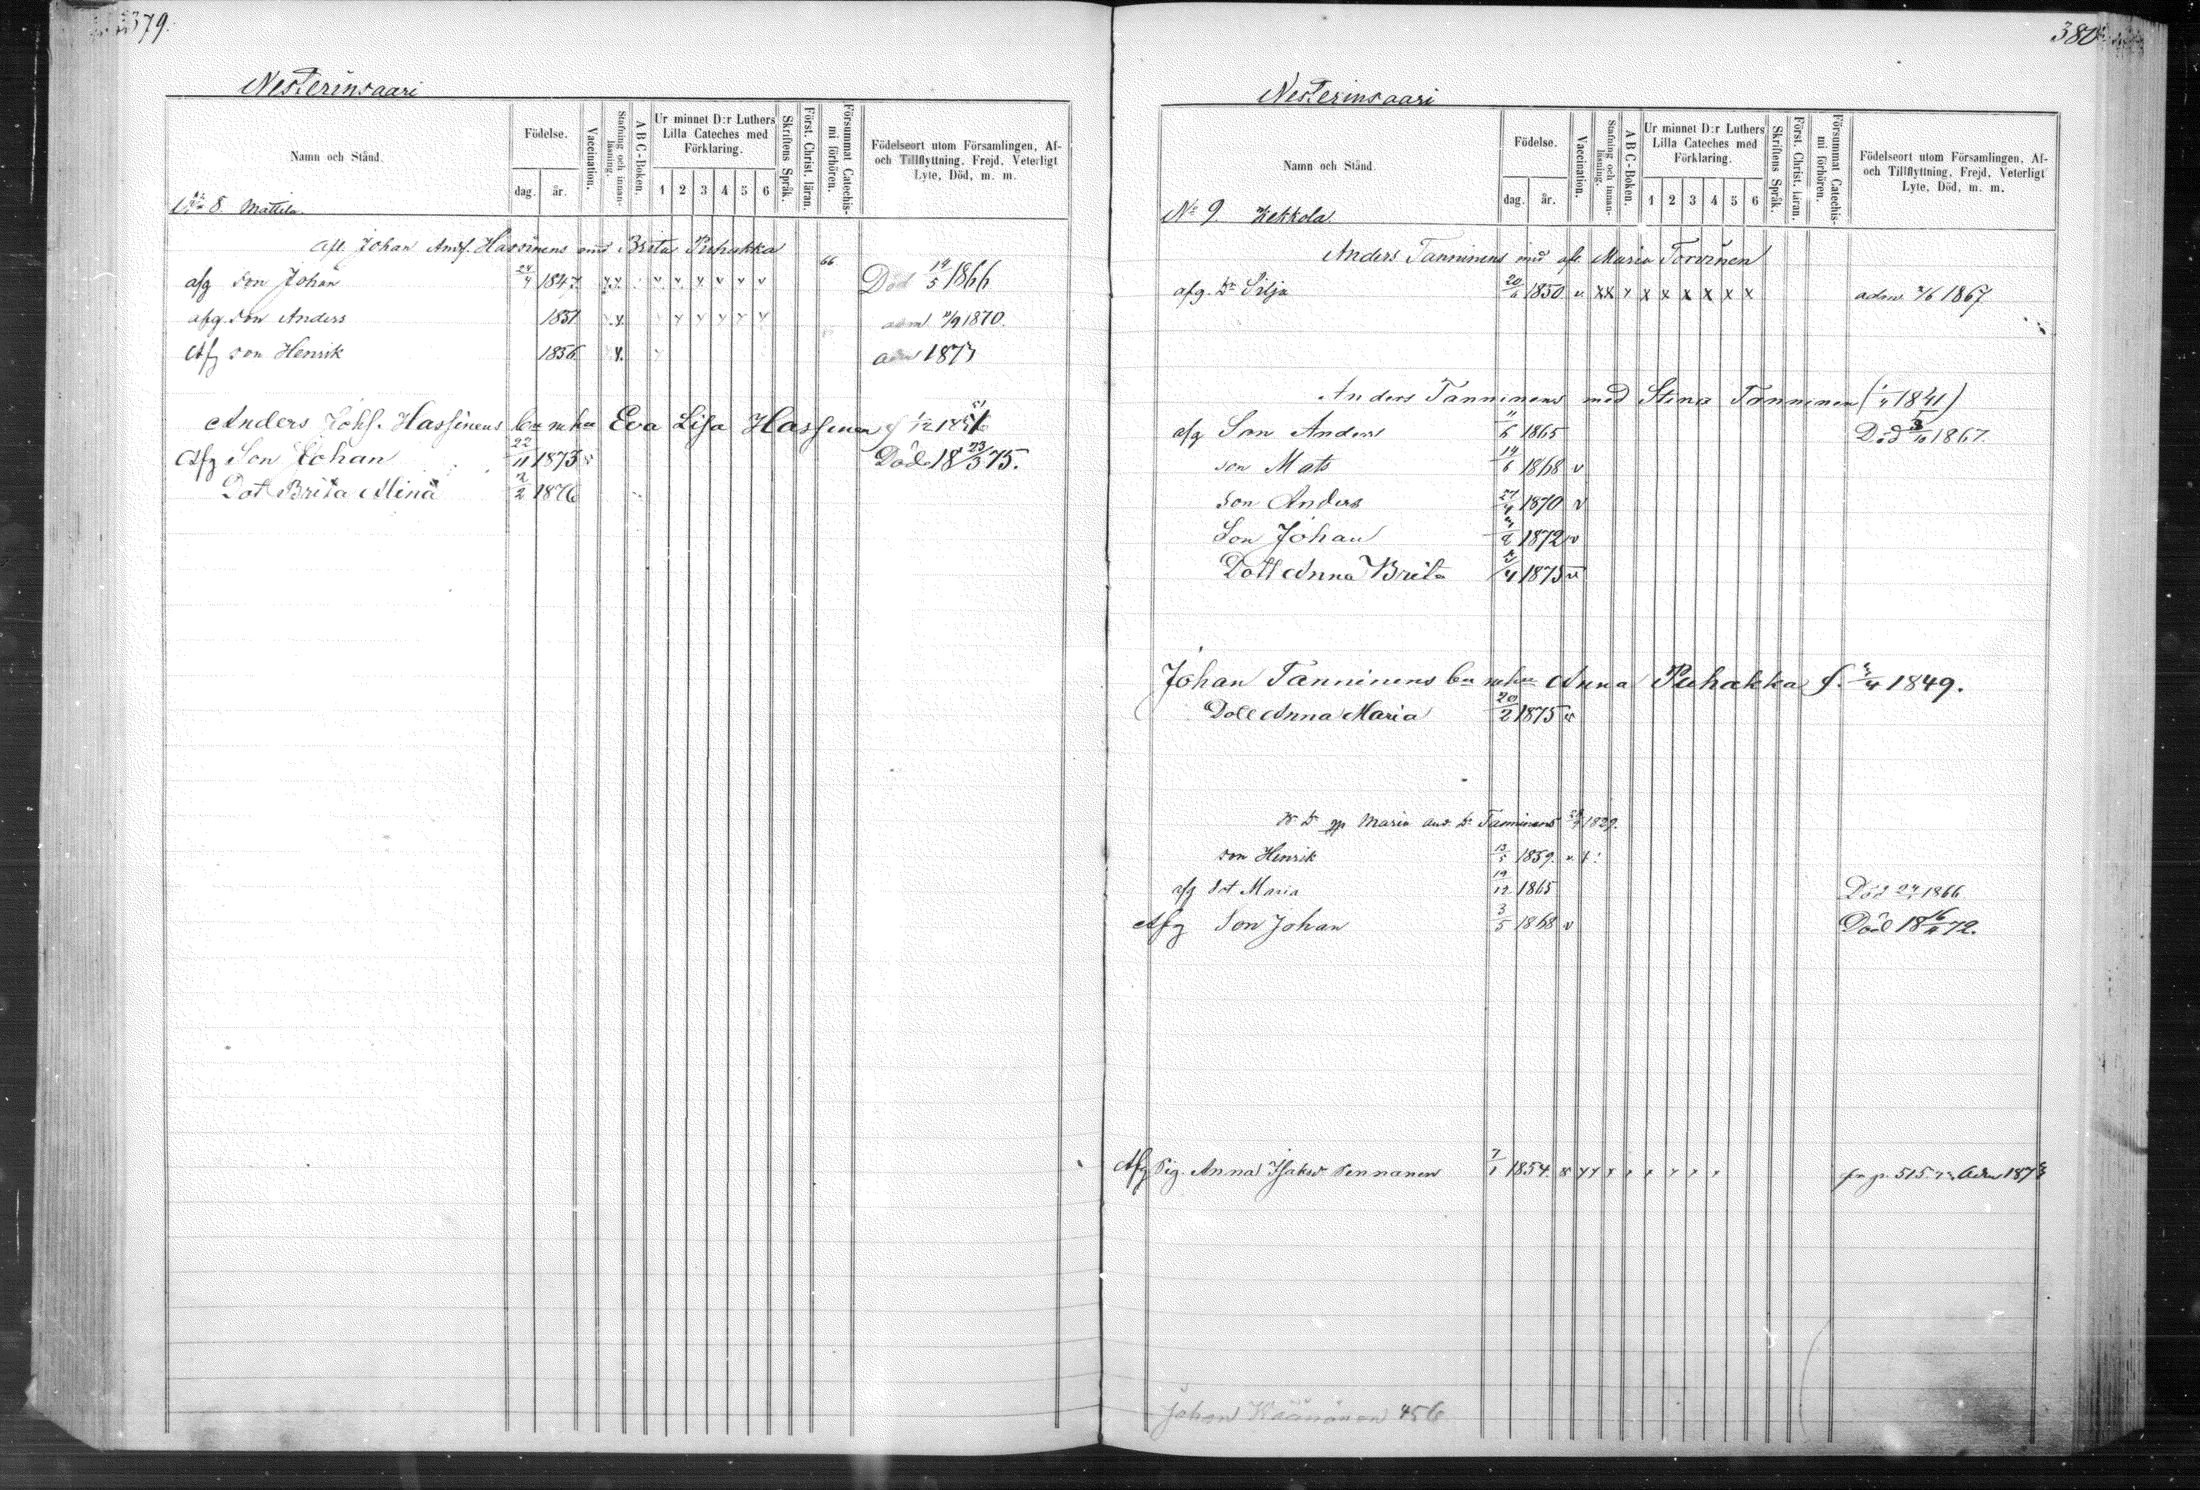 379.
Nesterinsaari
Namn och Stånd.
Födelse.
dag.
år.
Vaccination.
Stafning och innan-läsning.
A B C-Boken.
Ur minnet D:r Luthers Lilla Cateches med Förklaring.
1 2 3 4 5 6
Skriftens Språk.
Först. Christ. läran.
Försummat Catechis-mi förhören.
Födelseort utom Församlingen, Af- och Tillflyttning, Frejd, Veterligt Lyte, Död, m. m.
No 8 Mattila.
afl. Johan Andf. Hassinens med Brita Puhakka
afg son Johan 24/4 1847. v v v v v v 66 Död 14/5 1866
afg. son Anders 1851 v v v v v adm 1870.
Afg son Henrik 1856 adm 1873
Anders Johs. Hassinens bn m hu Eva Lisa Hassinen f
Afg Son Johan 22/11 1873 Död 18 23/3 75.
Dot Brita Mina 2/2 1876
380
Nesterinsaari
Namn och Stånd.
Födelse.
dag.
år.
Vaccination.
Stafning och innan-läsning.
A B C-Boken.
Ur minnet D:r Luthers Lilla Cateches med Förklaring.
1 2 3 4 5 6
Skriftens Språk.
Först. Christ. läran.
Försummat Catechis-mi förhören.
Födelseort utom Församlingen, Af- och Tillflyttning, Frejd, Veterligt Lyte, Död, m. m.
No 9 Kekkola
Anders Tanninens med afl. Maria Torvinen
afg. Dr Silja 20/6 1850 v x x x x x x x x adm. 1867
Anders Tanninens med Stina Tanninen (1/4 1841)
afg Son Anders 11/6 1865 Död 1867.
son Mats 14/6 1868 v
son Anders 27/4 1870 v
Son Johan 1872 v
Dott Anna Brita 1875 v
Johan Tanninens bn m hu Anna Puhakka f. 3/4 1849.
Dott Anna Maria 20/2 1875 v
Maria And. Dr Tanninens 1829.
son Henrik 13/5 1859.
afg dot Maria 19/12 1865 Död 1866
Afg Son Johan 3/5 1868 v Död 18 16/11 72.
Afg Pig. Anna Isaksd. Pennanen 7/1 1854. fr p. 515 Adm 1873
Johan Väänänen 456